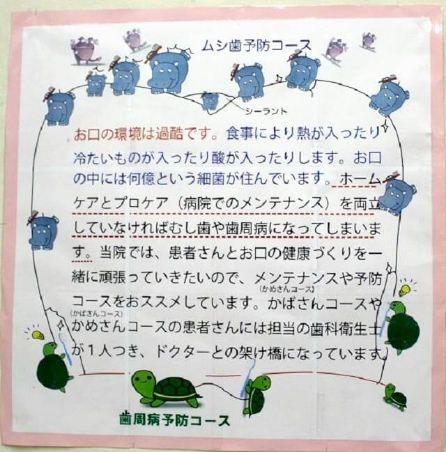 ムシ歯予防コース
シーラント
お口の環境は過酷です。食事により熱が入ったり
冷たいものが入ったり酸が入ったりします。お口
の中には何億という細菌が住んでいます。ホーム
ケアとプロケア（病院でのメンテナンス）を両立
していなければむし歯や歯周病になってしまいま
す。当院では、患者さんとお口の健康づくりを一
緒に頑張っていきたいので、メンテナンスや予防
(かめさんコース)
コースをおススメしています。かばさんコースや
(かばさんコース)
かめさんコースの患者さんには担当の歯科衛生士
が１人つき、ドクターとの架け橋になっています。
歯周病予防コース